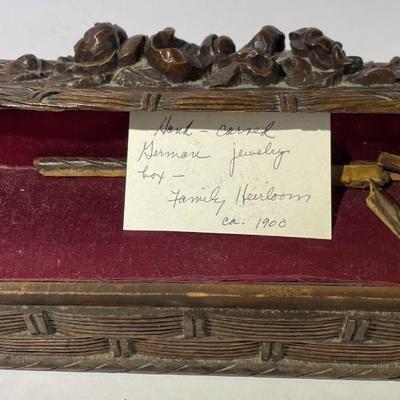 Hand - carved
German jewelry
box -
Family Heirloom
ca. 1900